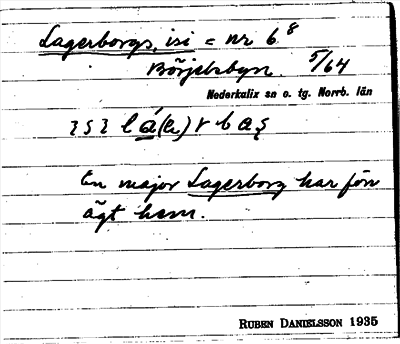 Lagerborgs, isi = nr 6.8
Börjelsbyn. 5/64
Nederkalix sn o. tg. Norrb. län
En major Lagerborg har förr
ägt hem.
RUBEN DANIELSSON 1935